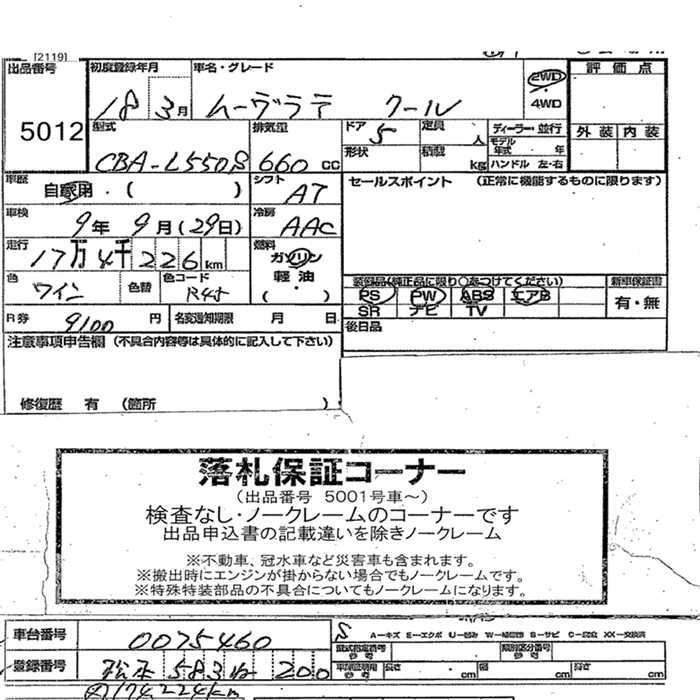 [2119]
出品番号 5012
初度登録年月 18年 3月
車名・グレード ムーヴラテ クール
2WD
4WD
評価点
外装 内装
型式 CBA-L550S
排気量 660 cc
ドア 5
形状
定員 人
積載 kg
ディーラー・並行
モデル年式 年
ハンドル 左・右
車歴 自家用・( )
シフト AT
セールスポイント (正常に機能するものに限ります)
車検 9年 9月 (29日)
冷房 AAC
走行 17万4千226km
燃料 ガソリン
軽油
( ・ )
色 ワイン
色替
色コード R45
装備品(純正品に限り○をつけてください)
PS PW ABS エアB
SR ナビ TV
新車保証書
有・無
R券 9100円
名変通知期限 月 日
後日品
注意事項申告欄 (不具合内容等は具体的に記入して下さい)
修復歴 有 (箇所 )
落札保証コーナー
(出品番号 5001号車～)
検査なし・ノークレームのコーナーです
出品申込書の記載違いを除きノークレーム
※不動車、冠水車など災害車も含まれます。
※搬出時にエンジンが掛からない場合でもノークレームです。
※特殊特装部品の不具合についてもノークレームになります。
車台番号 0075460
S
A-キズ E-エクボ U-凹み W-補修跡 S-サビ C-腐食 XX-交換済
登録番号 松本 583 ね 200
型式指定番号 参考
類別区分番号 参考
車庫証明用 参考 長さ cm 幅 cm 高さ cm
174224km